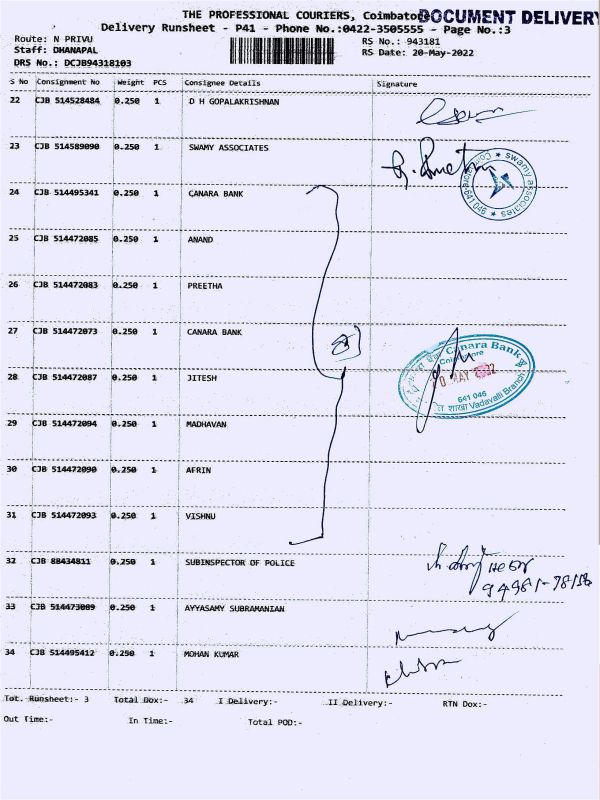 THE PROFESSIONAL COURIERS, Coimbatore
DOCUMENT DELIVERY
Delivery Runsheet - P41 - Phone No.:0422-3505555 - Page No.:3
Route: N PRIVU
RS No.: 943181
Staff: DHANAPAL
RS Date: 20-May-2022
DRS No.: DCJB94318103
S No Consignment No Weight PCS Consignee Details Signature
22 CJB 514528484 0.250 1 D H GOPALAKRISHNAN
23 CJB 514589090 0.250 1 SWAMY ASSOCIATES
swamy associates ★ Coimbatore-641 046 ★
24 CJB 514495341 0.250 1 CANARA BANK
25 CJB 514472085 0.250 1 ANAND
26 CJB 514472083 0.250 1 PREETHA
27 CJB 514472073 0.250 1 CANARA BANK
8
Canara Bank
Coimbatore
MAY
641 046
शाखा Vadavalli Branch
28 CJB 514472087 0.250 1 JITESH
29 CJB 514472094 0.250 1 MADHAVAN
30 CJB 514472090 0.250 1 AFRIN
31 CJB 514472093 0.250 1 VISHNU
32 CJB 88434811 0.250 1 SUBINSPECTOR OF POLICE
33 CJB 514473089 0.250 1 AYYASAMY SUBRAMANIAN
34 CJB 514495412 0.250 1 MOHAN KUMAR
Tot. Runsheet:- 3 Total Dox:- 34 I Delivery:- II Delivery:- RTN Dox:-
Out Time:- In Time:- Total POD:-